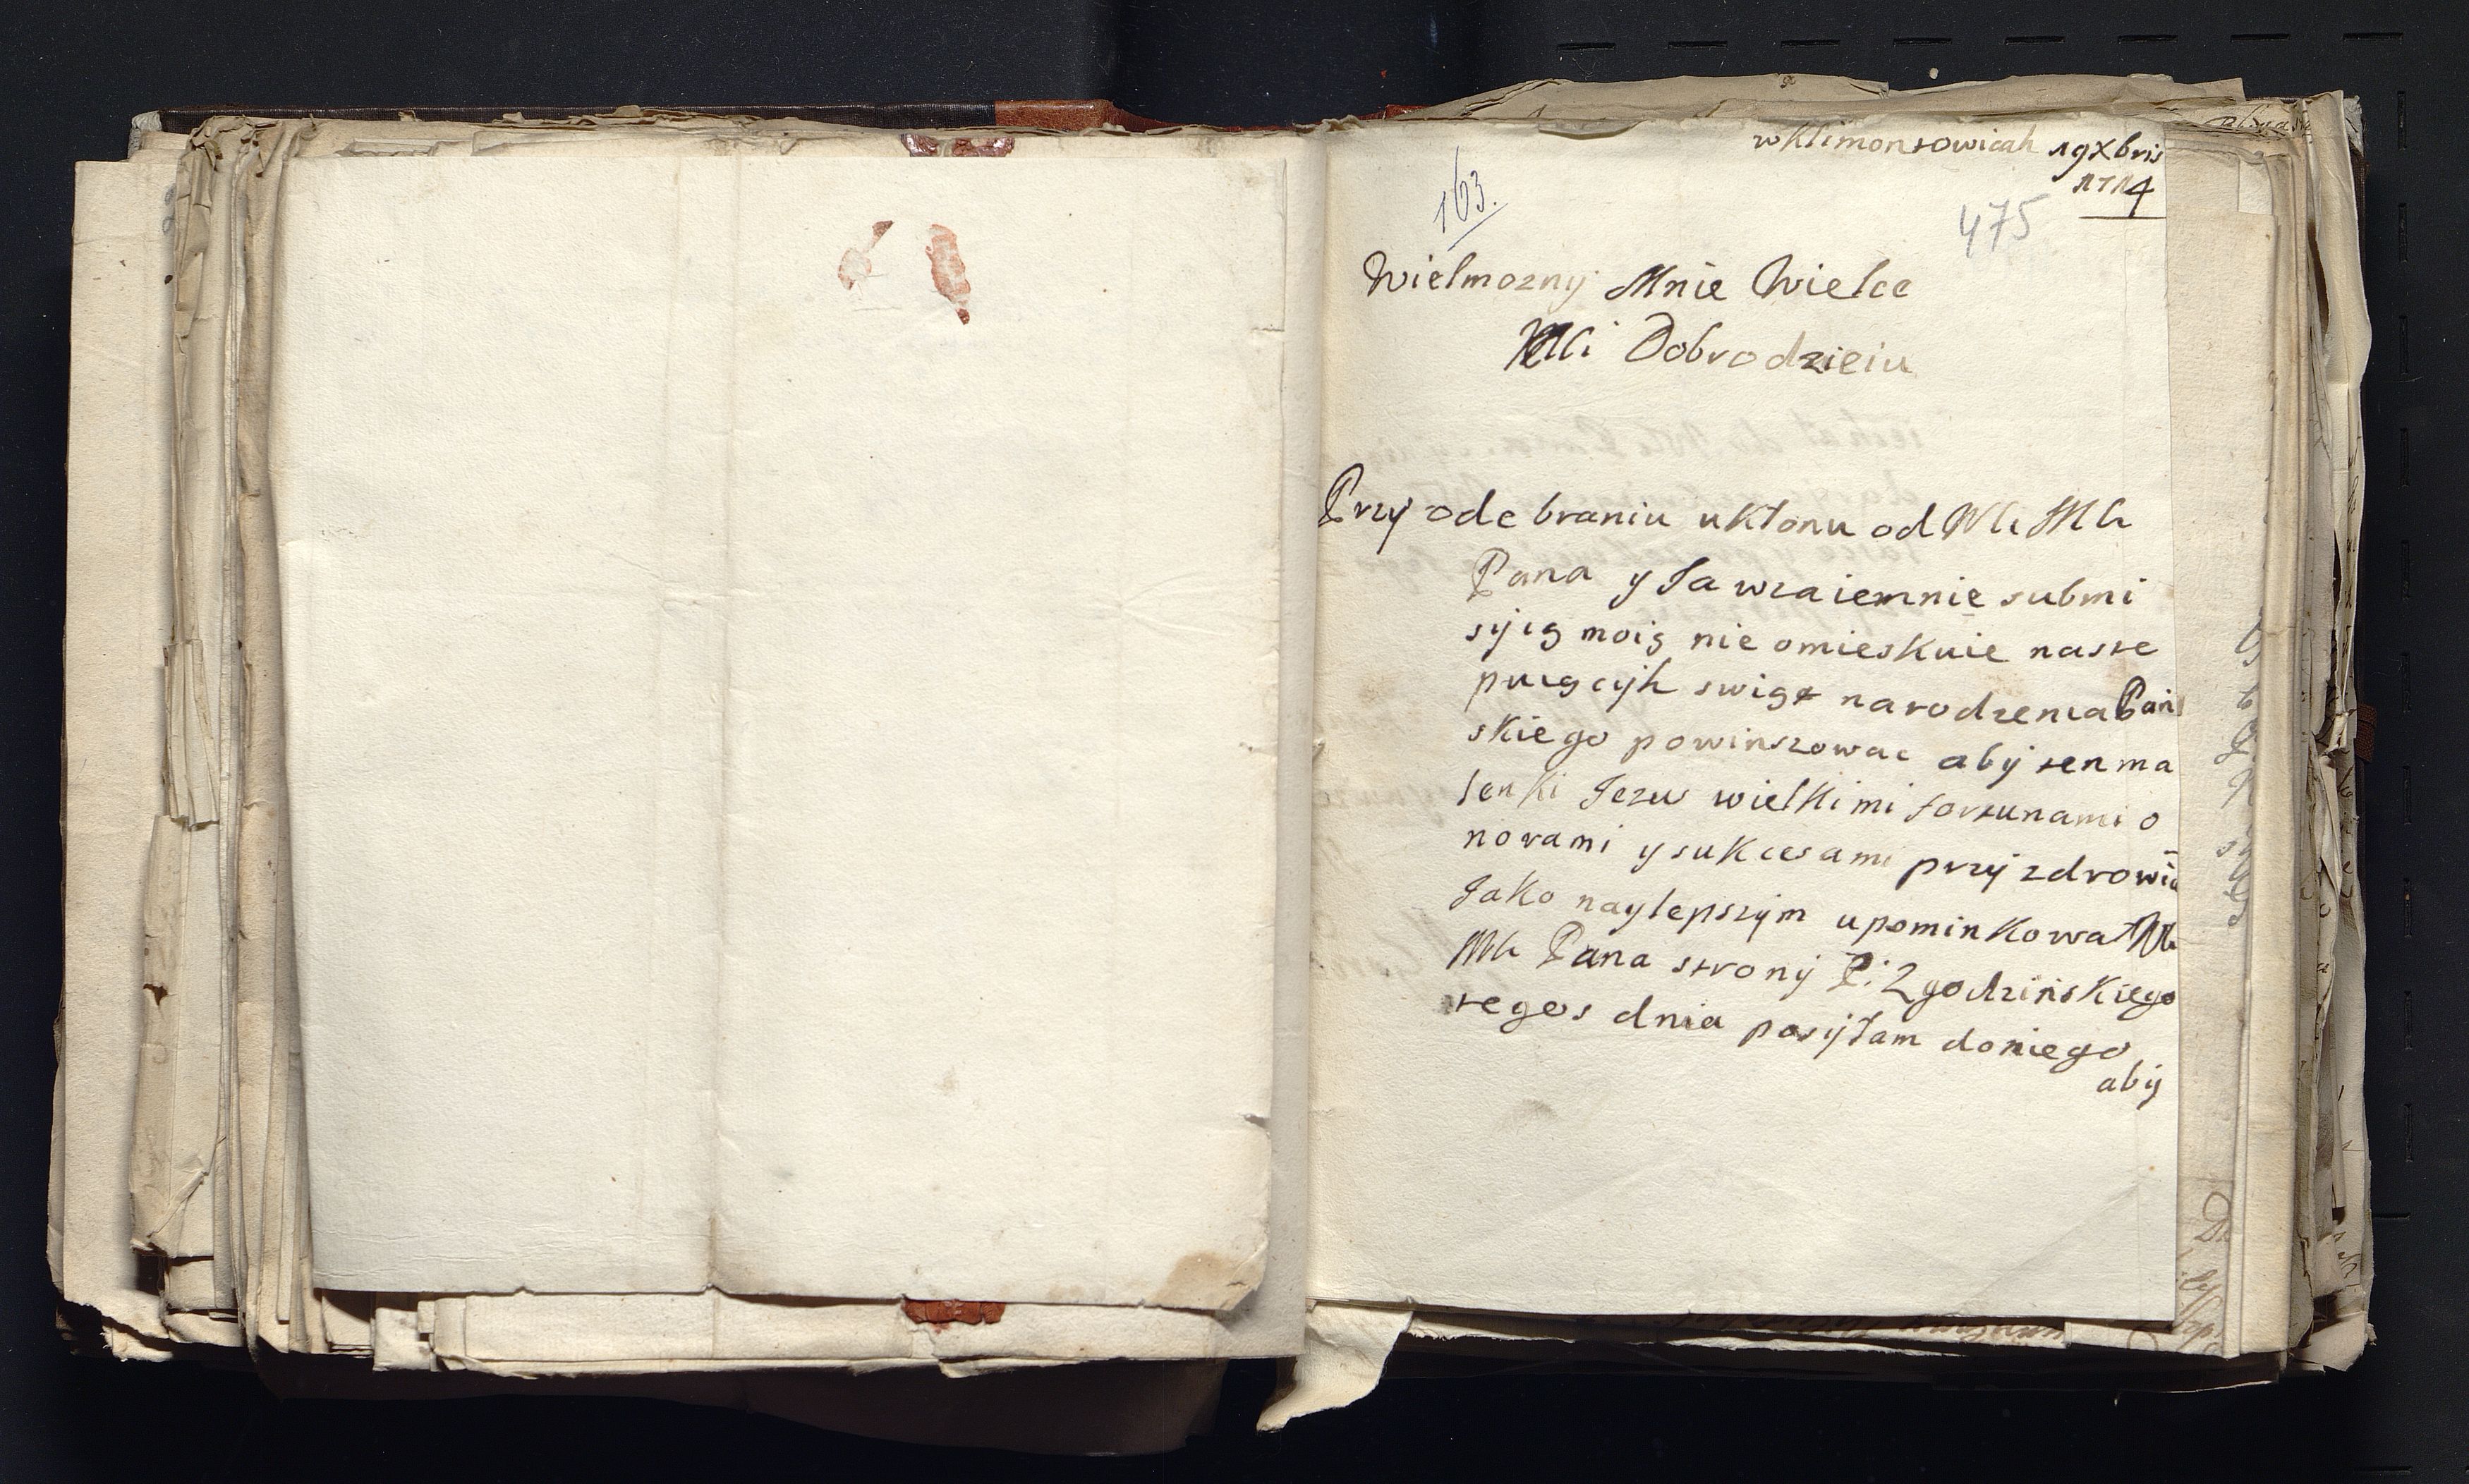 w Klimontowicah 19 Xbris
1714
163.
475
Wielmozny Mnie Wielce
Mci Dobrodzieiu
Przy ode braniu ukłonu od Wh Mh
Pana y Ja wzaiemnie submi
syią moią nie omieskuie naste
puiącyh swiąt narodzenia Pan
skiego powinszowac aby ten ma
lenki Jezus wielkimi fortunami o
norami y sukcesami przy zdrowiu
Jako naylepszym upominkował Wh
Mh Pana strony P: Zgodzińskiego
tegos dnia posyłam doniego
aby